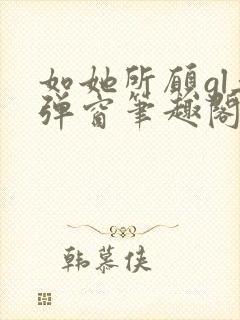 如她所愿gl
弹窗笔趣阁
韩慕侠